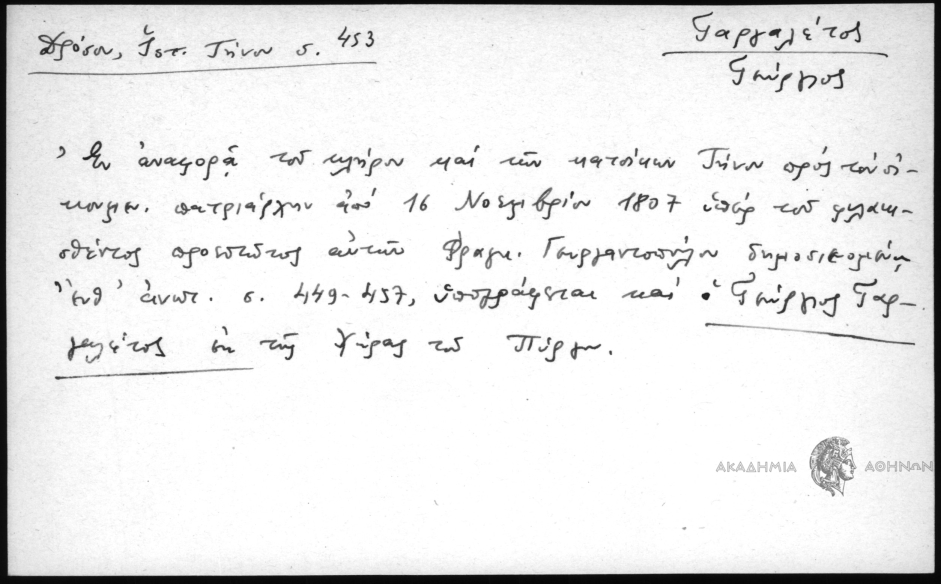 Δρόσου, Ἱστ. Τήνου σ. 453
Γαργαλέτος
Γεώργιος
Ἐν ἀναφορᾷ τοῦ κλήρου καὶ τῶν κατοίκων Τήνου πρὸς τὸν οἰ-
κουμεν. πατριάρχην ἀπὸ 16 Νοεμβρίου 1807 ὑπὲρ τοῦ φυλακι-
σθέντος προεστῶτος αὐτῶν Φραγκ. Γεωργαντοπούλου δημοσιευομένῃ
ἔνθ' ἀνωτ. σ. 449-457, ὑπογράφεται καὶ ὁ Γεώργιος Γαρ-
γαλέτος ἐκ τῆς χώρας τοῦ Πύργου.
ΑΚΑΔΗΜΙΑ ΑΘΗΝΩΝ